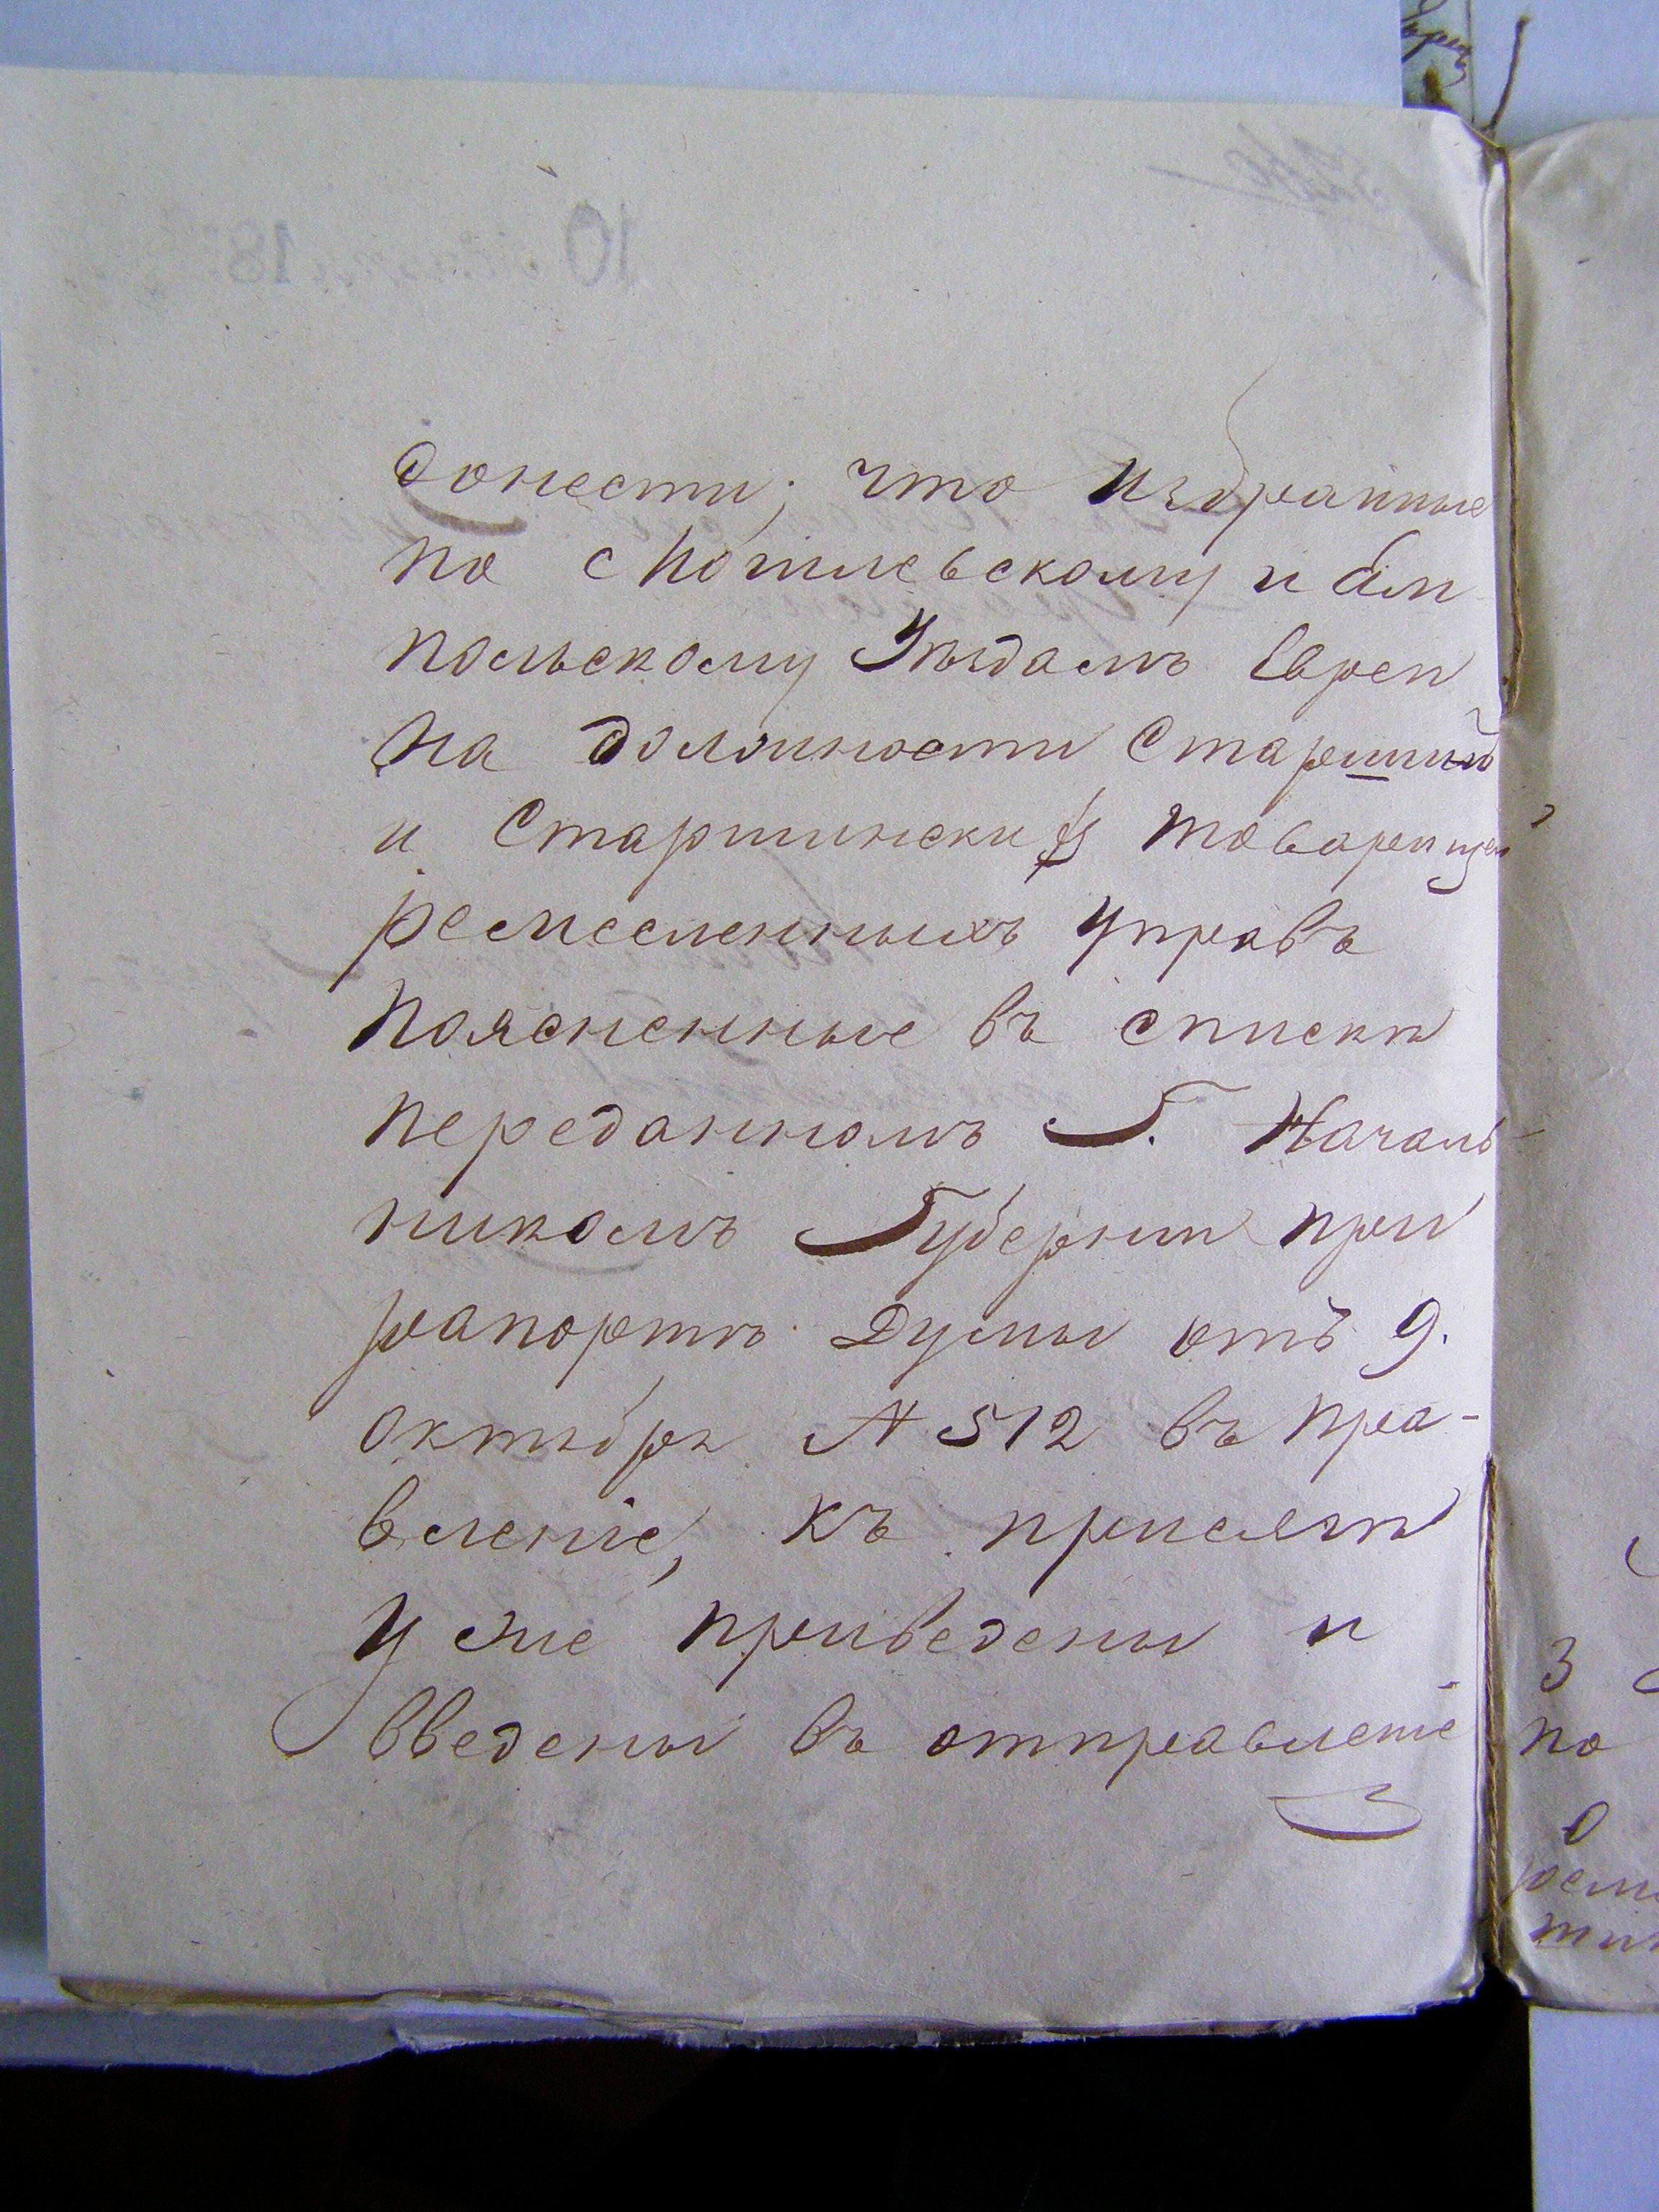 донести; что Избранные
по Могилевскому и Ям
польскому Уѣздамъ Евреи
на должности Старшинъ
и Старшинскихъ товарищей
ремесленныхъ Управъ
поясненные въ списки
переданномъ Г. Началь
никомъ Губерніи при
рапортѣ Думы отъ 9.
Октября № 512 въ Пра-
вленіе, къ присяги
уже приведены и
введены въ отправленіе
по